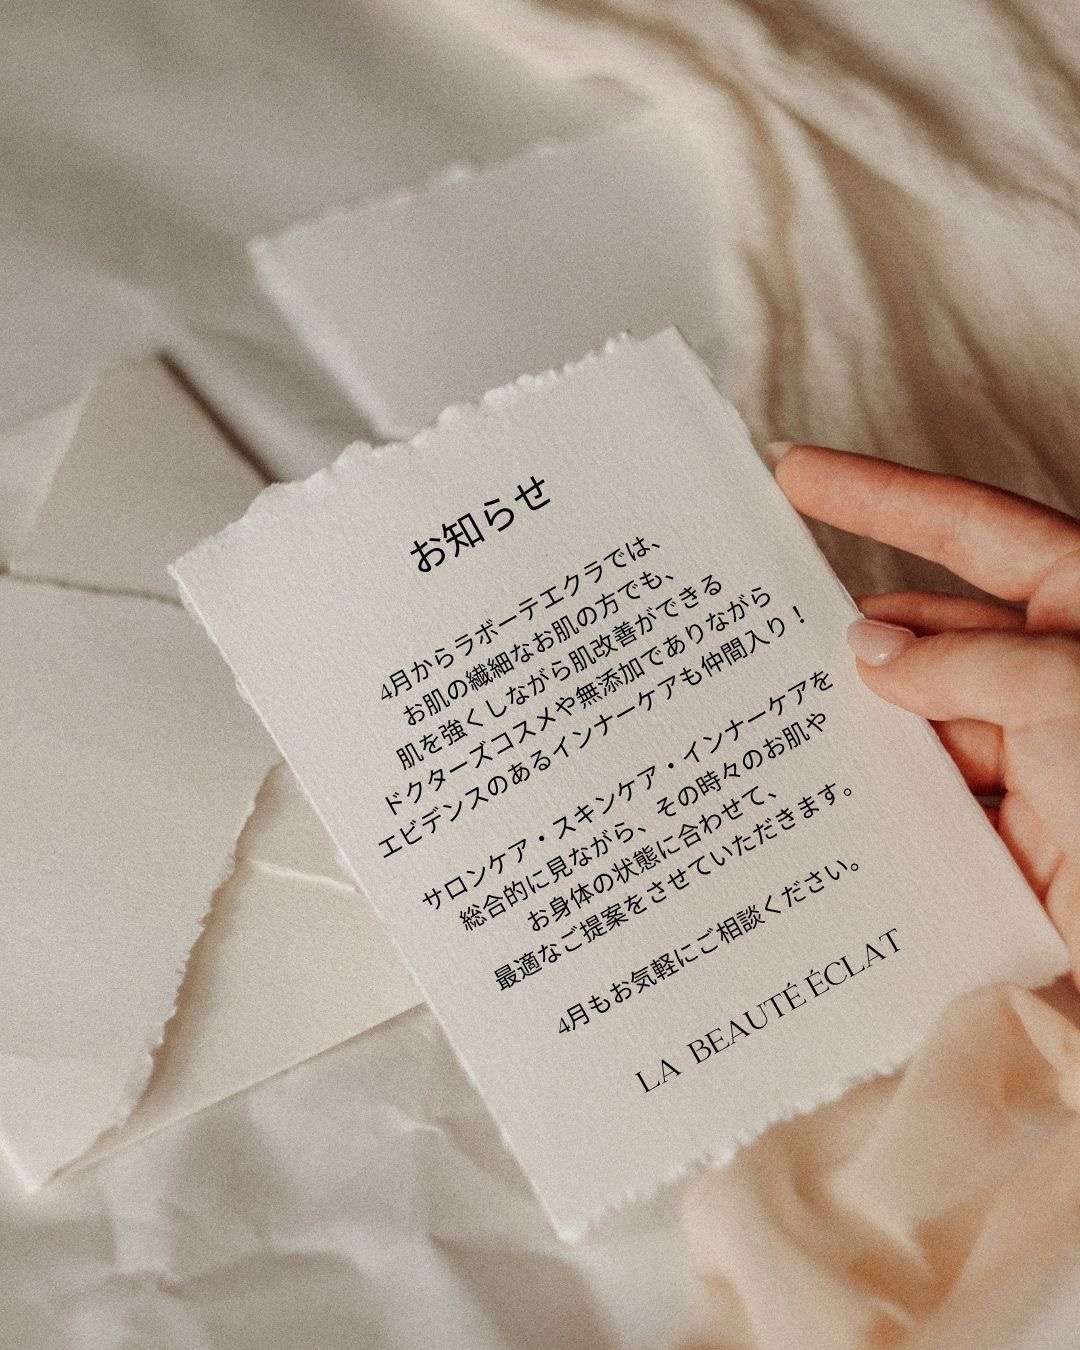 お知らせ
4月からラボーテエクラでは、
お肌の繊細なお肌の方でも、
肌を強くしながら肌改善ができる
ドクターズコスメや無添加でありながら
エビデンスのあるインナーケアも仲間入り！
サロンケア・スキンケア・インナーケアを
総合的に見ながら、その時々のお肌や
お身体の状態に合わせて、
最適なご提案をさせていただきます。
4月もお気軽にご相談ください。
LA BEAUTÉ ÉCLAT